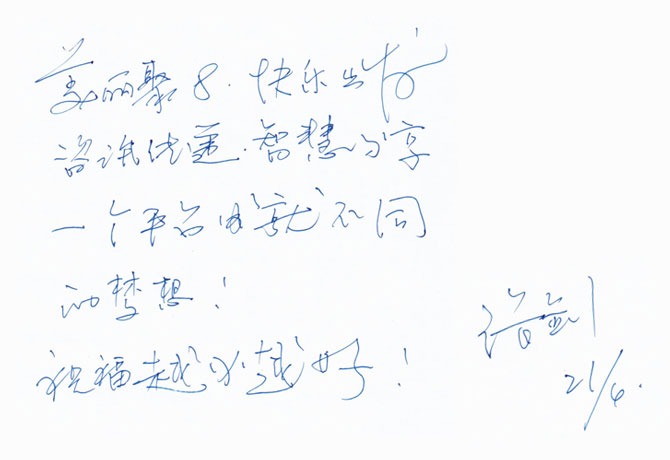 美丽聚8.快乐出游
咨讯传递.智慧分享
一个平台成就不同
的梦想!
祝福越来越好!
21/6.